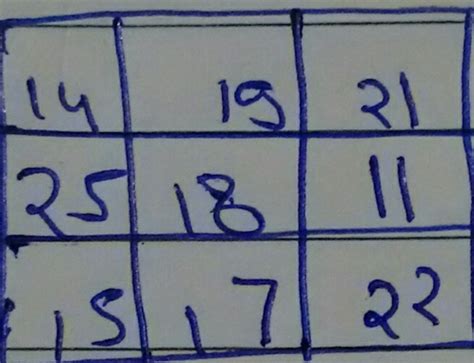 14 19 21
25 18 11
15 17 22